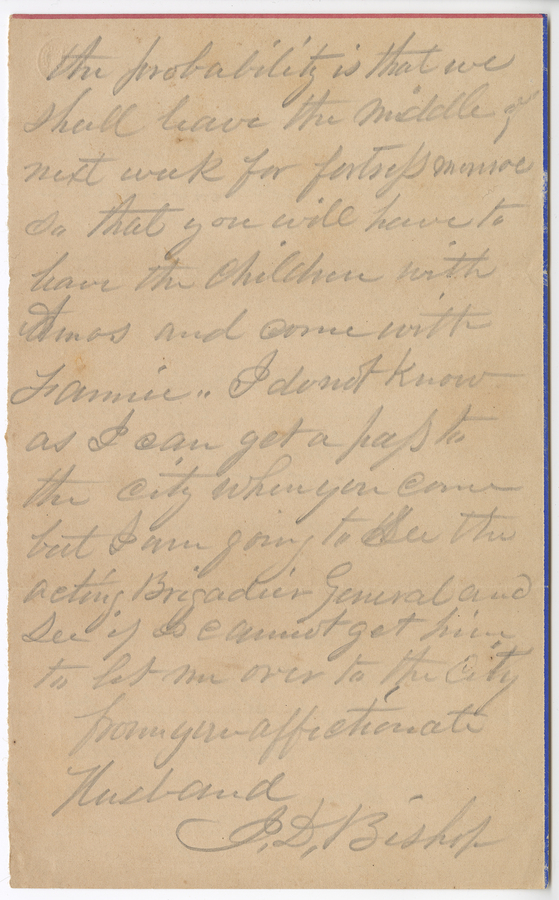 the probability is that we
shall leave the middle of
next week for fortress monroe
so that you will have to
leave the children with
Amos and come with
Fannie.. I do not know
as I can get a pass to
the city when you come
but I am going to See the
acting Brigadier General and
See if I cannot get him
to let me over to the City
from your affectionate
Husband
J. D. Bishop